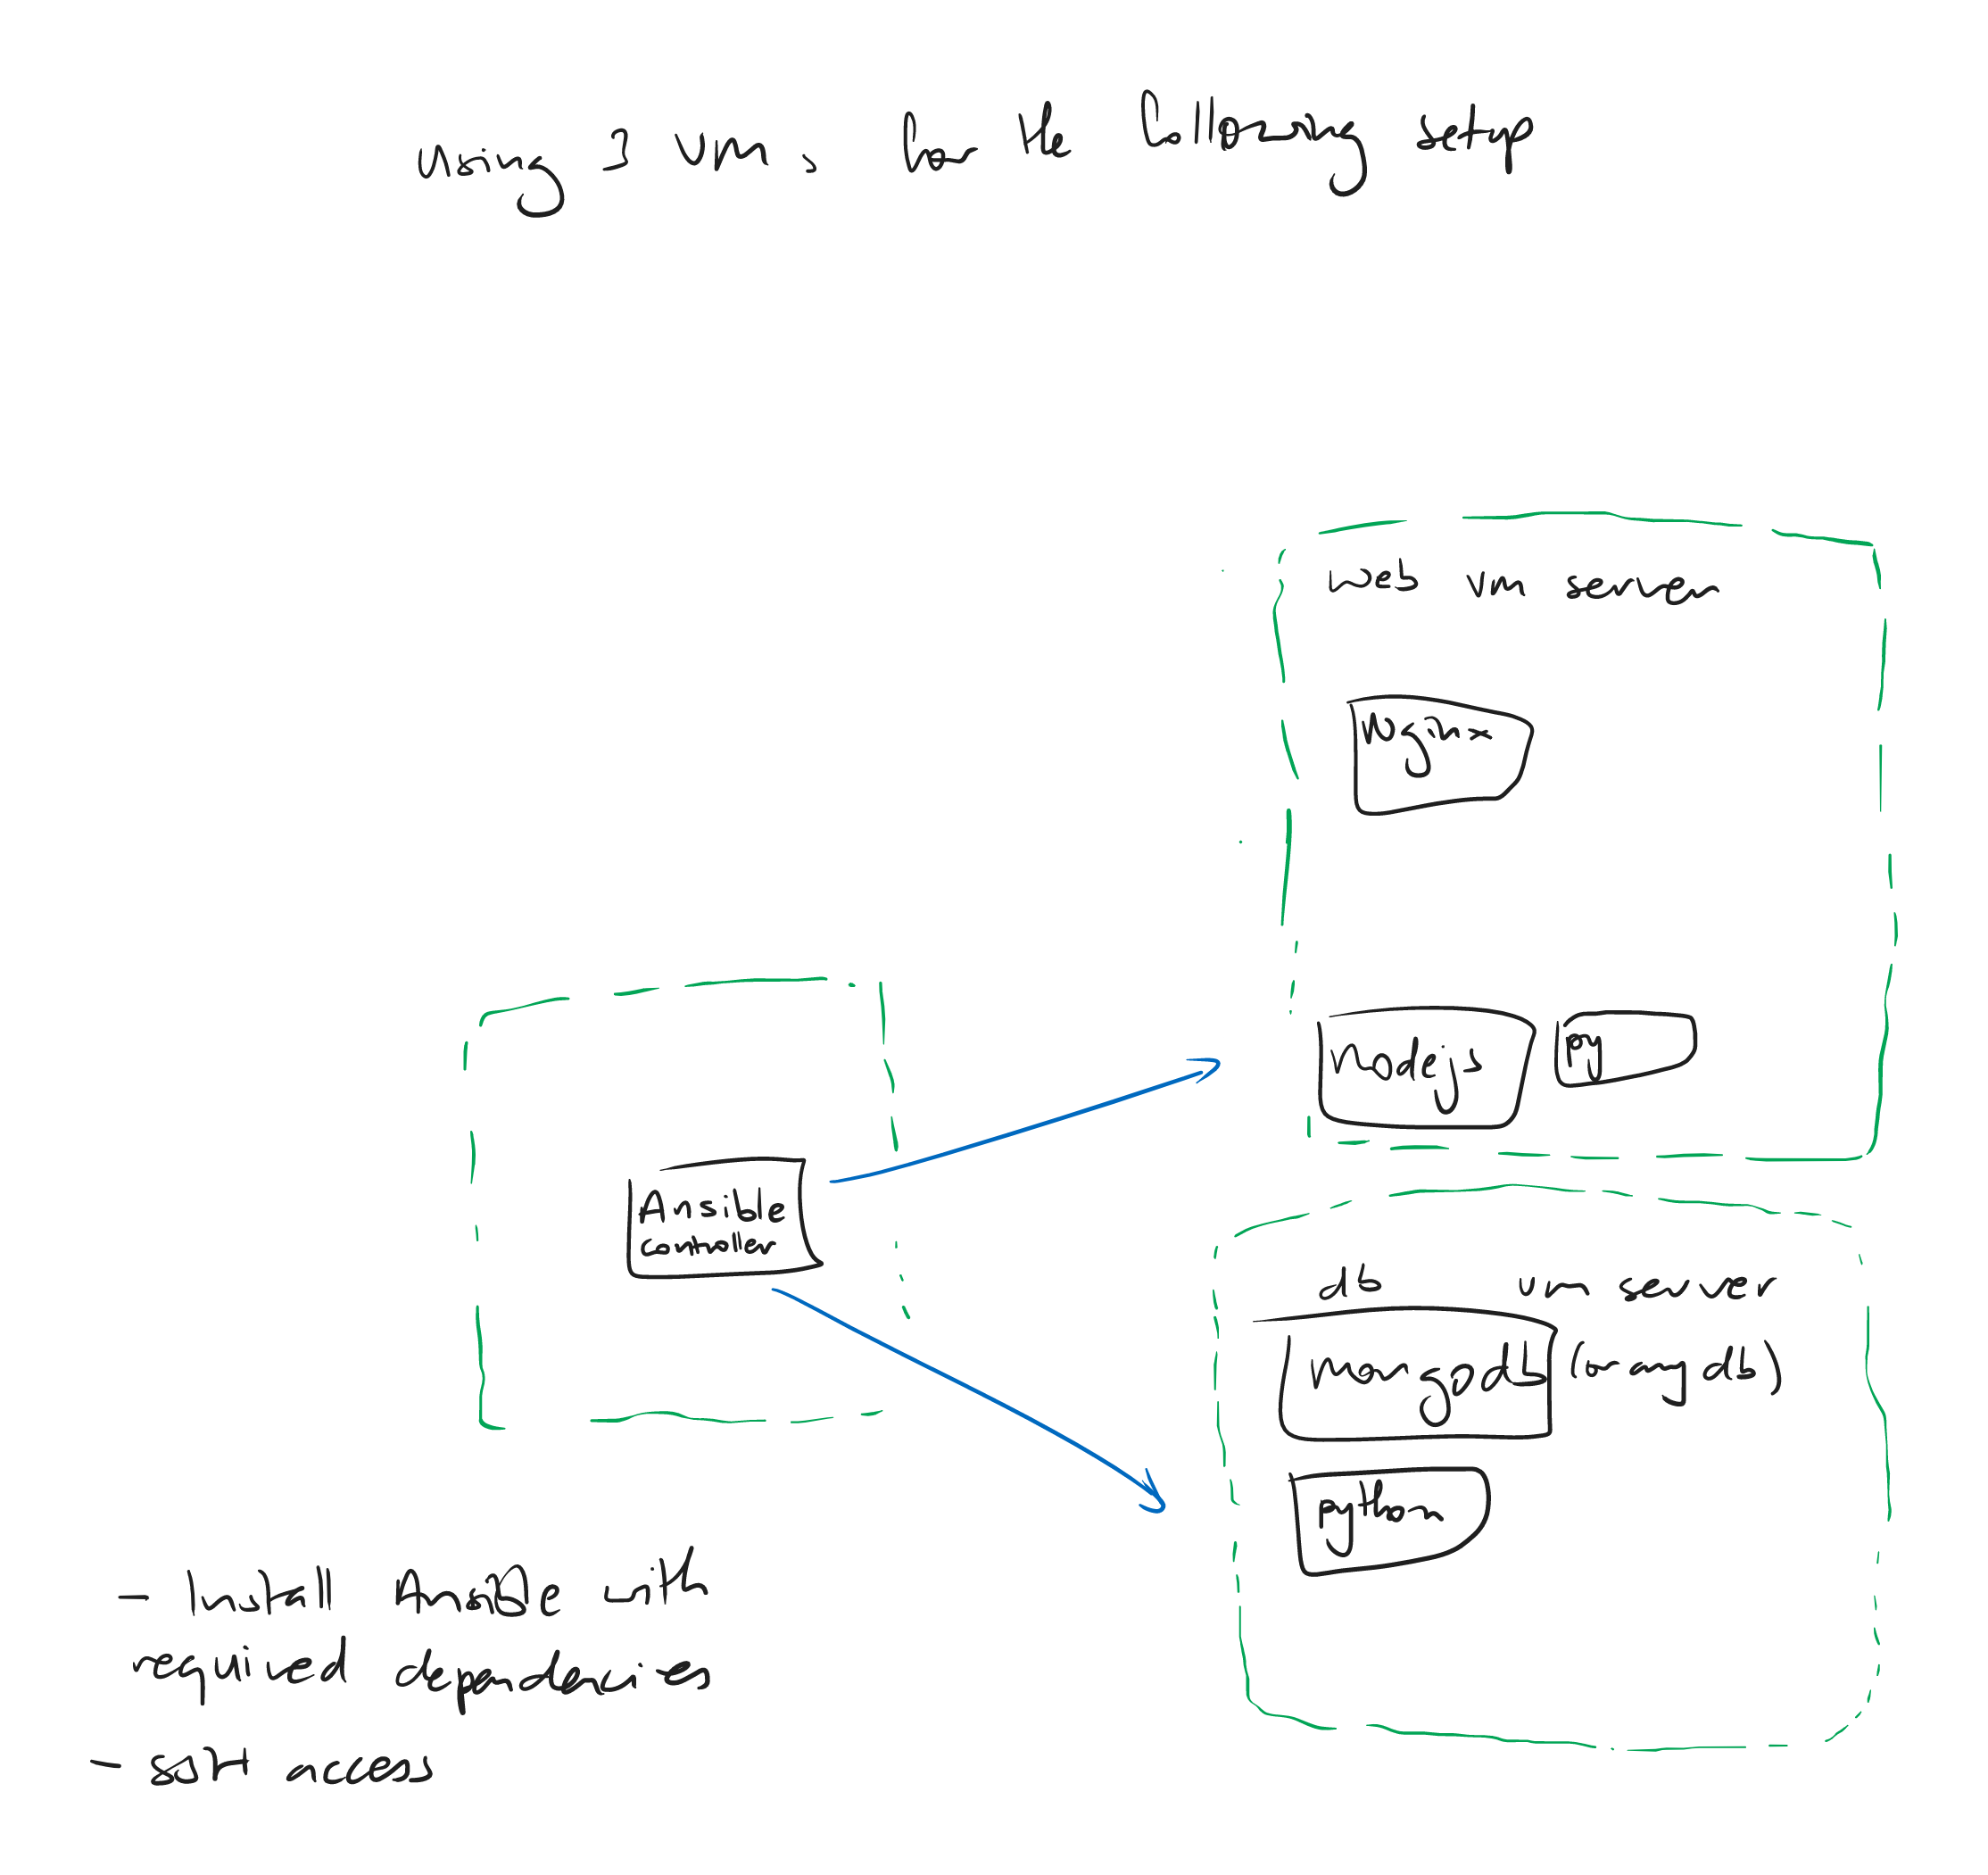 using 3 vms for the following setup
web vm server
Nginx
nodejs
py
Ansible
controller
db vm server
mongodb (or any db)
python
- Install Ansible with
required dependencies
- SSH access